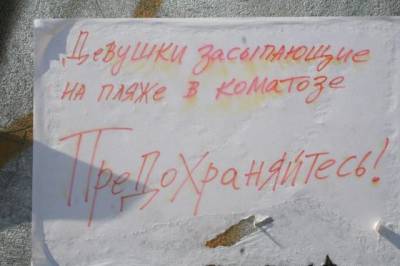 Девушки засыпающие
на пляже в коматозе
Предохраняйтесь!